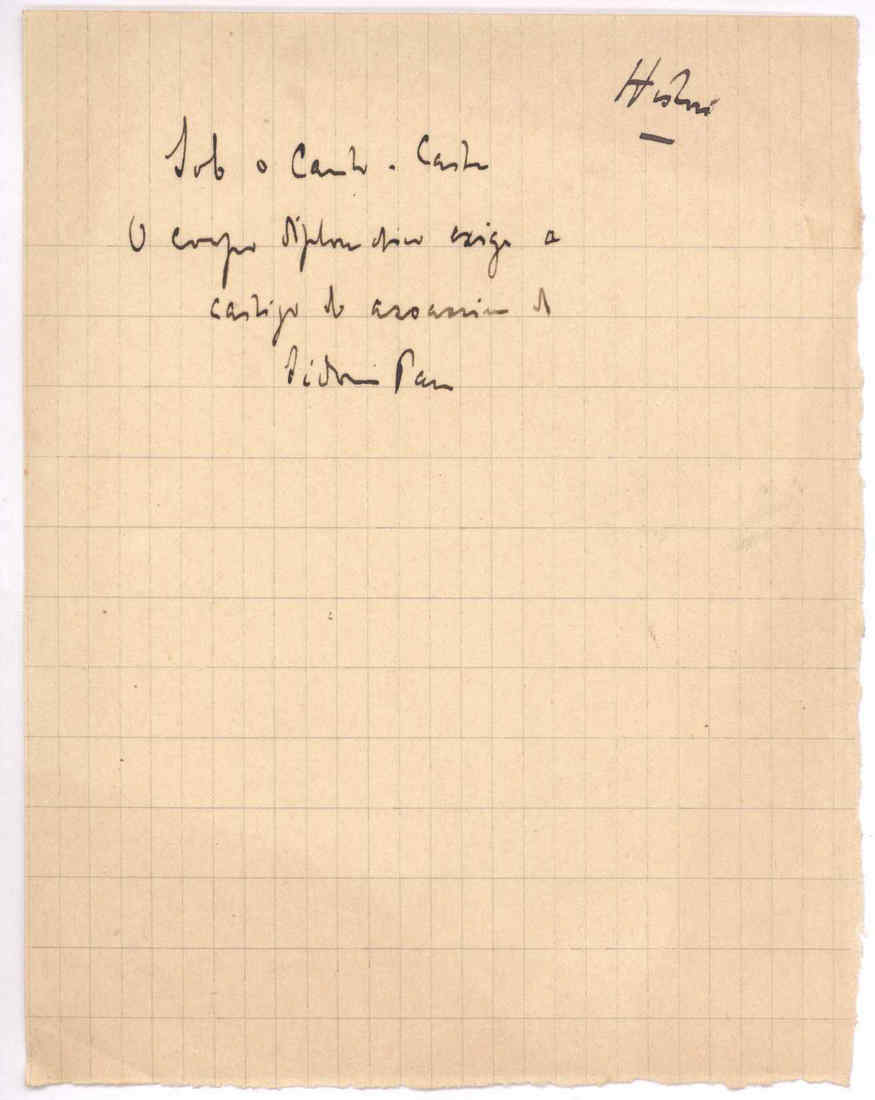 História
Sob o Canto - Castro
O corpo diplomatico exige o
castigo do assassino de
Sidonio Paes